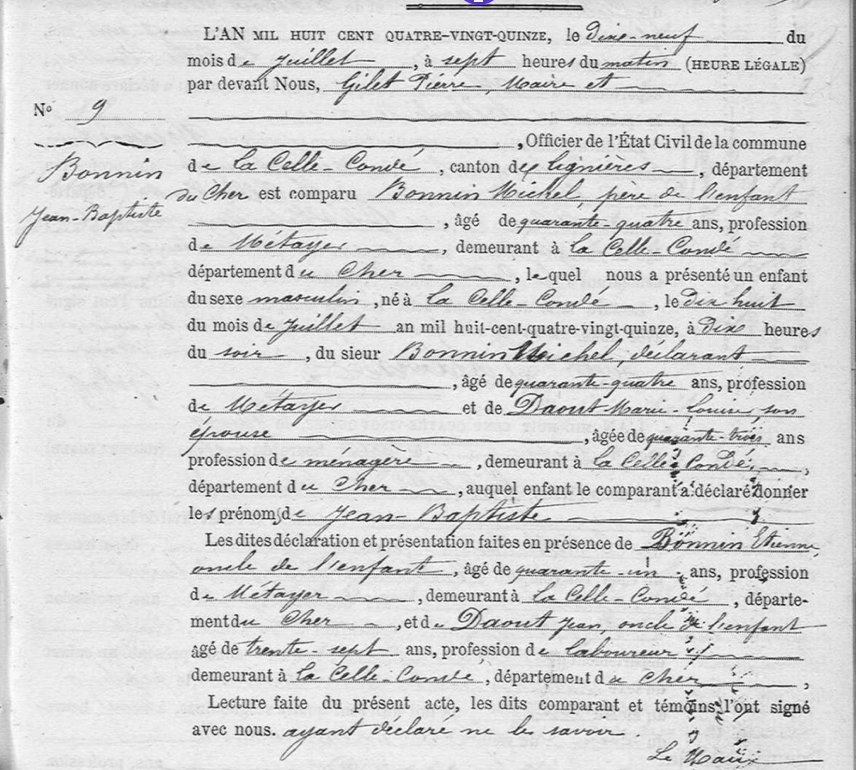 L'AN MIL HUIT CENT QUATRE-VINGT-QUINZE, le dixe-neuf du
mois de Juillet, à sept heures du matin (HEURE LÉGALE)
par devant Nous, Gilet Pierre, Maire et
N° 9
, Officier de l'État Civil de la commune
Bonnin
de La Celle-Condé, canton de Lignières, département
Jean-Baptiste
du Cher est comparu Bonnin Michel, père de l'enfant
, âgé de quarante-quatre ans, profession
de Métayer, demeurant à la Celle-Condé
département du Cher, lequel nous a présenté un enfant
du sexe masculin, né à La Celle-Condé, le dix huit
du mois de Juillet an mil huit-cent-quatre-vingt-quinze, à Dix heures
du soir, du sieur Bonnin Michel déclarant
, âgé de quarante-quatre ans, profession
de Métayer et de Daout Marie-Louise son
épouse, âgée de quarante-trois ans
profession de ménagère, demeurant à la Celle-Condé,
département du Cher, auquel enfant le comparant a déclaré donner
les prénoms de Jean-Baptiste
Les dites déclaration et présentation faites en présence de Bonnin Etienne,
oncle de l'enfant, âgé de quarante-un ans, profession
de Métayer, demeurant à La Celle-Condé, départe-
ment du Cher, et de Daout Jean, oncle de l'enfant
âgé de trente-sept ans, profession de laboureur
demeurant à La Celle-Condé, département du Cher,
Lecture faite du présent acte, les dits comparant et témoins l'ont signé
avec nous. ayant déclaré ne le savoir.
Le Maire